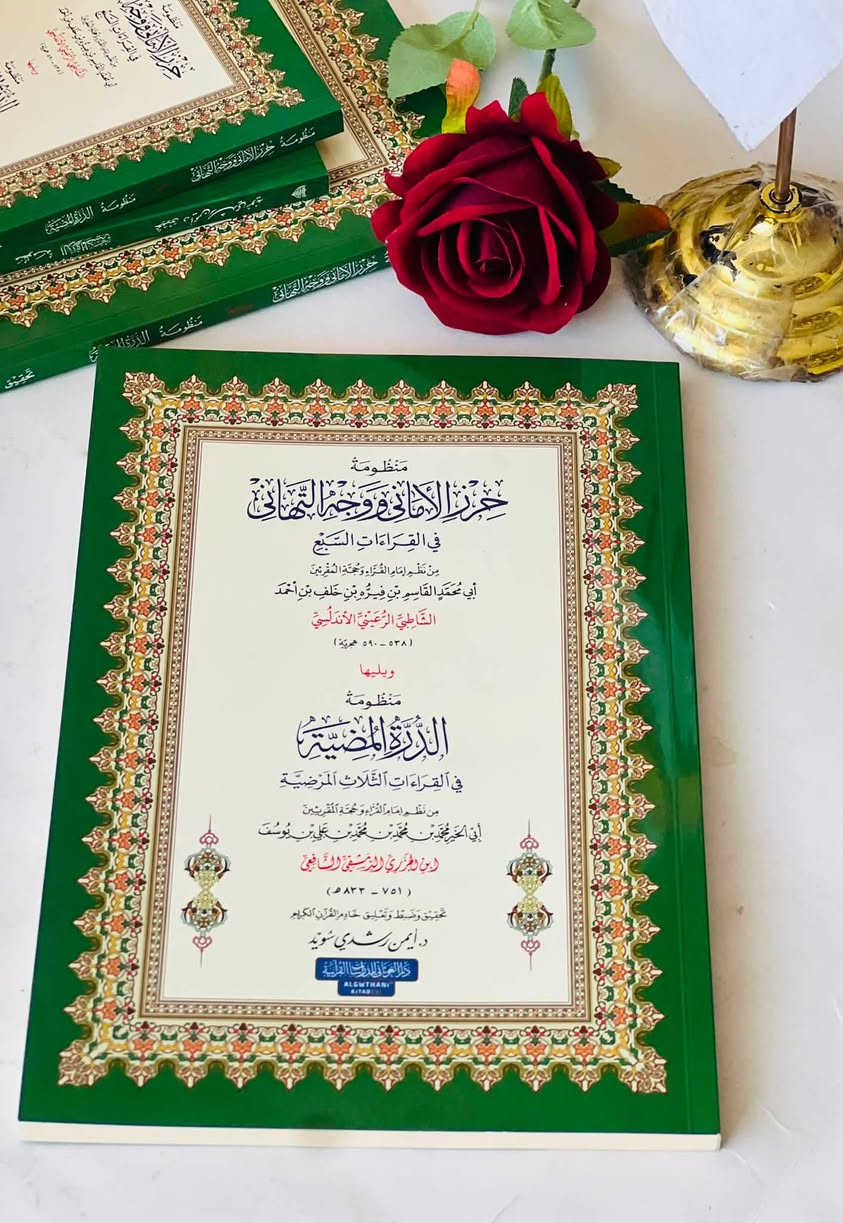 مَنْظُومَةُ
حِرْزِ الأَمَانِي وَوَجْهِ التَّهَانِي
فِي القِرَاءَاتِ السَّبْعِ
مِنْ نَظْمِ إِمَامِ القُرَّاءِ وَحُجَّةِ المُقْرِئِينَ
أَبِي مُحَمَّدٍ القَاسِمِ بْنِ فِيرُّه بْنِ خَلَفِ بْنِ أَحْمَدَ
الشَّاطِبِيِّ الرُّعَيْنِيِّ الأَنْدَلُسِيِّ
(٥٣٨ - ٥٩٠ هجرية)
ويليها
مَنْظُومَةُ
الدُّرَّةِ المُضِيَّةِ
فِي القِرَاءَاتِ الثَّلَاثِ المَرْضِيَّةِ
مِن نَظْمِ إِمَامِ القُرَّاءِ وَحُجَّةِ المُقْرِئِينَ
أَبِي الخَيْرِ مُحَمَّدِ بْنِ مُحَمَّدِ بْنِ مُحَمَّدِ بْنِ عَلِيِّ بْنِ يُوسُفَ
ابنِ الجَزَرِيِّ الدِّمَشْقِيِّ الشَّافِعِيِّ
(٧٥١ - ٨٣٣ هـ)
تَحْقِيق وَضَبْط وَتَعْلِيق خَادِم القُرْآنِ الكَرِيم
د. أيمن رشدي سُوَيْد
دار الغوثاني للدراسات القرآنية
ALGWTHANI
KITAB
مَنْظُومَةُ حِرْزِ الأَمَانِي وَوَجْهِ التَّهَانِي
مَنْظُومَةُ الدُّرَّةِ المُضِيَّةِ
حِرْزِ الأَمَانِي وَوَجْهِ التَّهَانِي
مَنْظُومَةُ الدُّرَّةِ
تحقيق